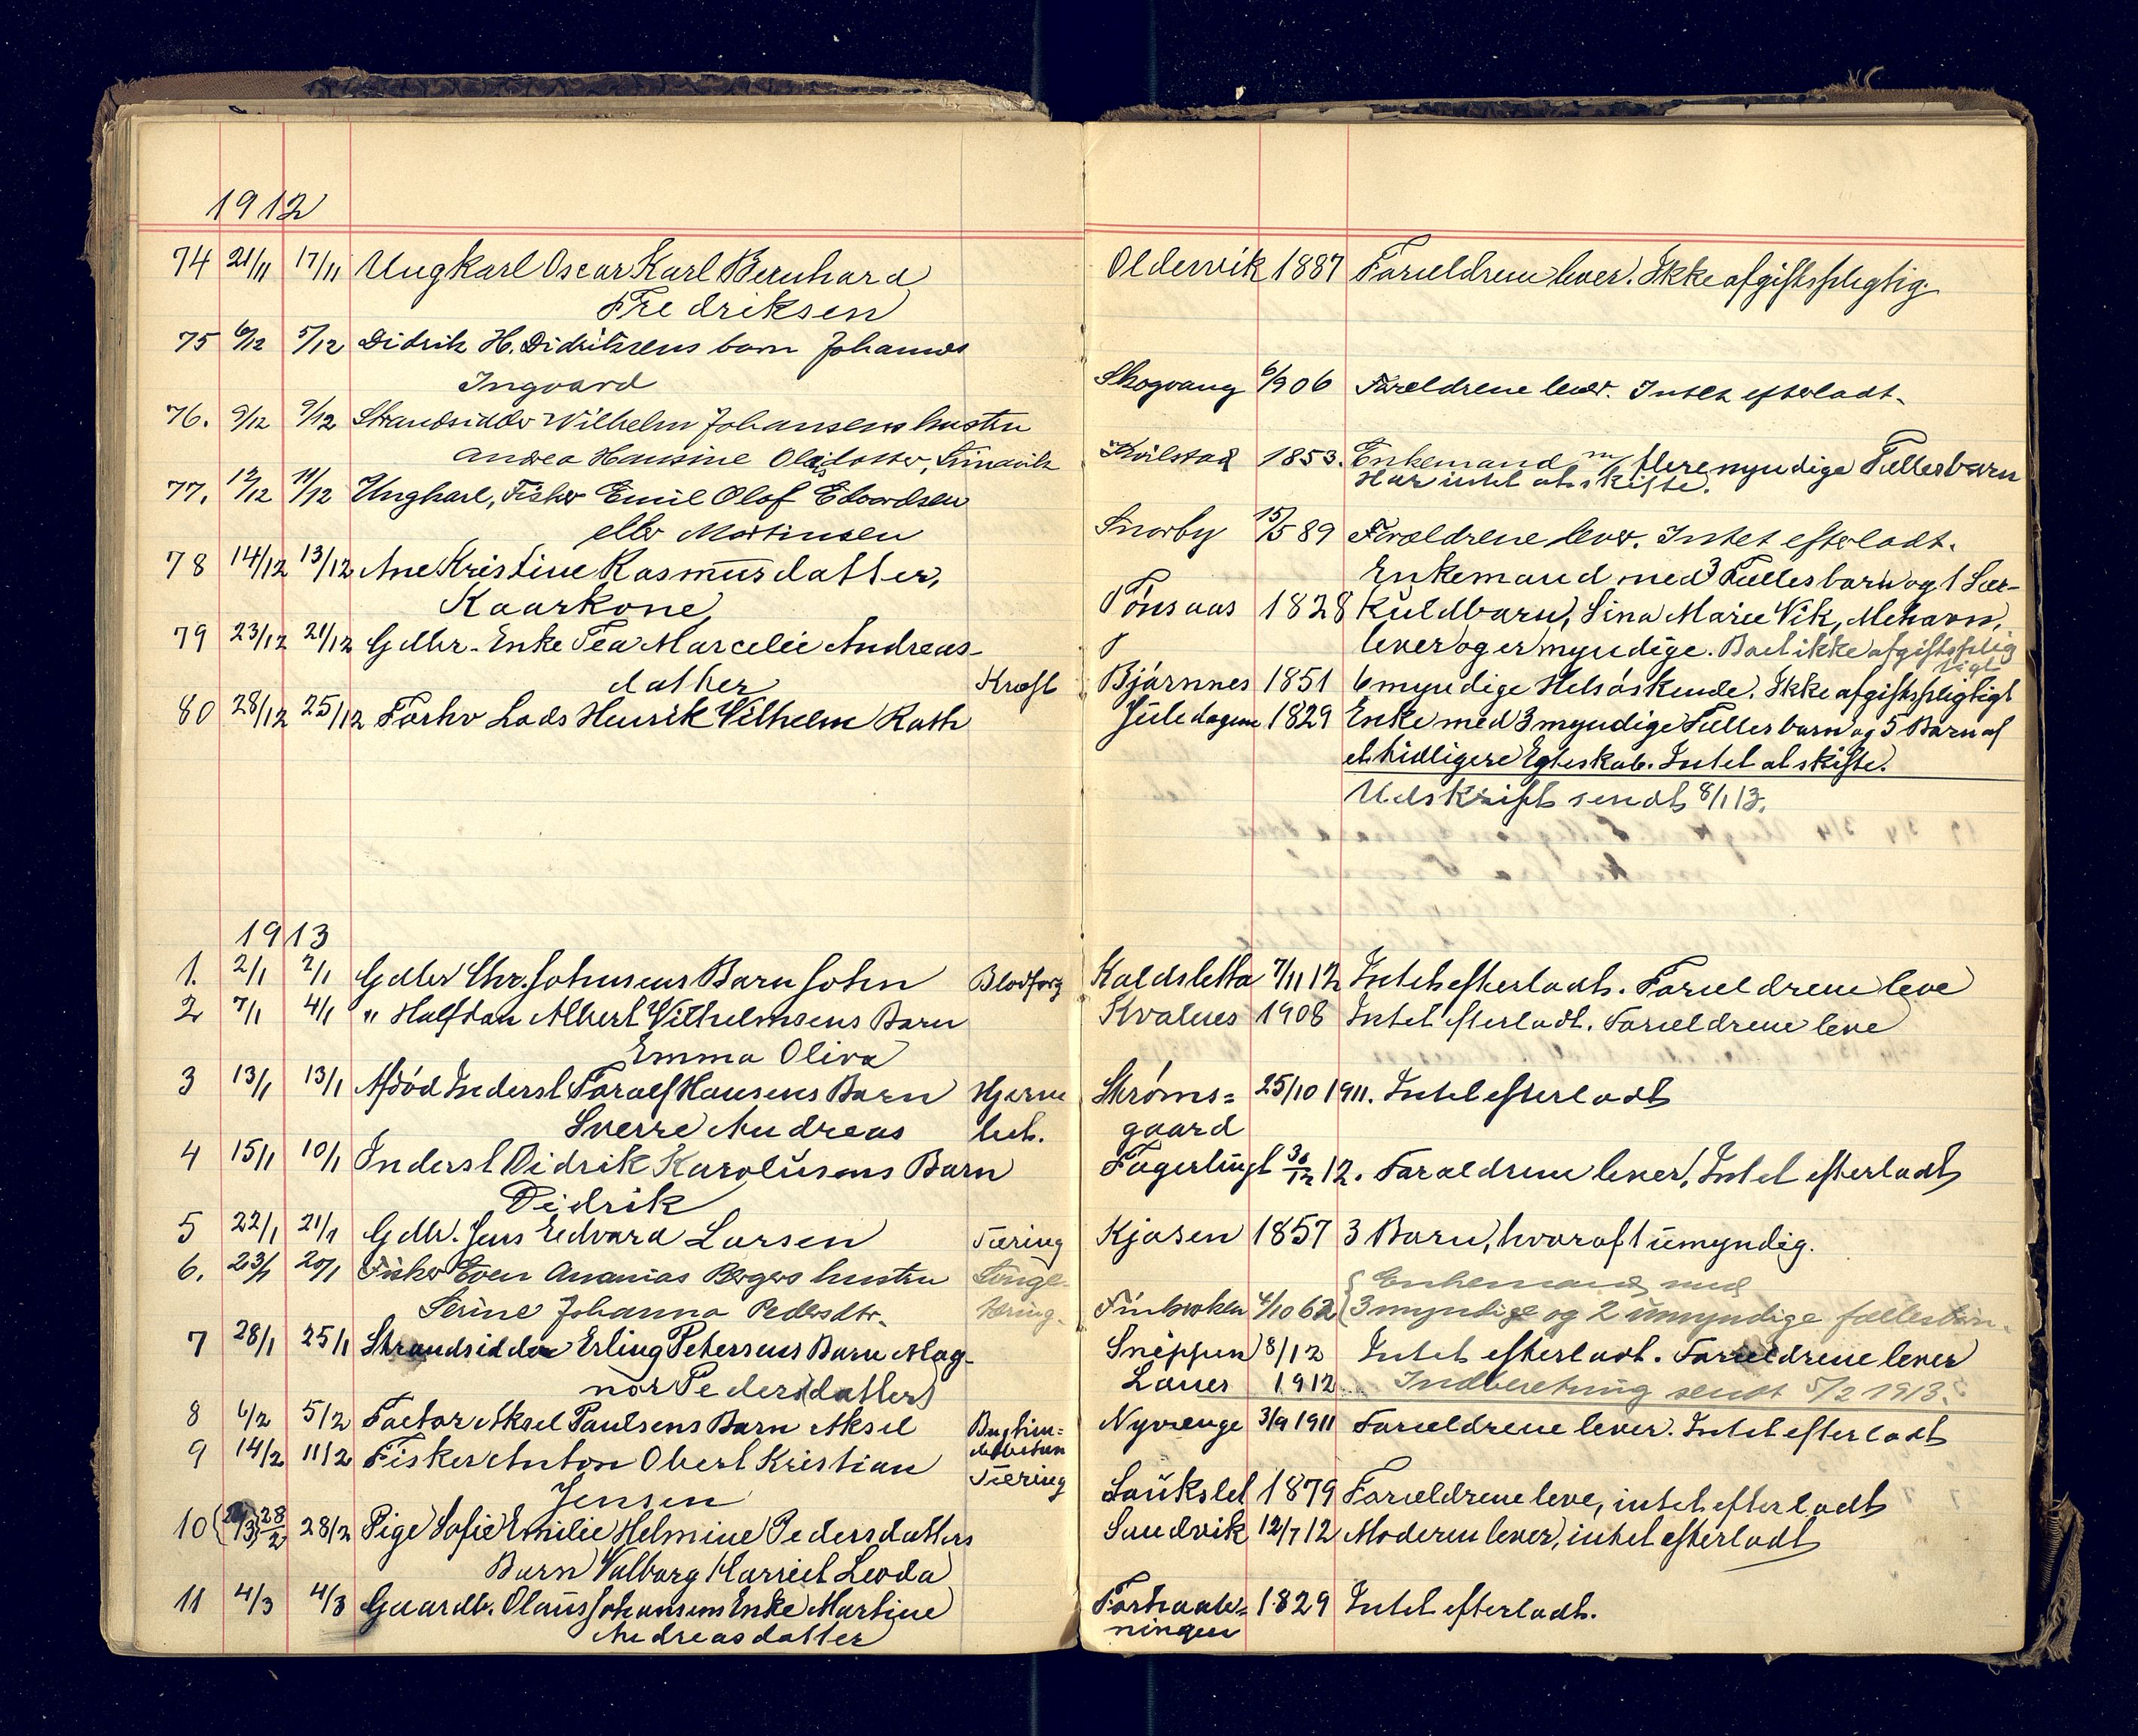 1912
74 21/11 17/11 Ungkarl Oscar Karl Bernhard
Fredriksen
75 6/12 5/12 Didrik H. Didriksens barn Johannes
Ingvard
76. 9/12 9/12 Strandsidder Wilhelm Johansens hustru
Andrea Hansine Olaisdatter,
77. 12/12 11/12 Ungkarl, Fisker Emil Olaf Edvardsen
eller Martinsen
78 14/12 13/12 Ane Kristine Rasmusdatter,
Kaarkone
79 23/12 21/12 Gdbr. Enke Tea Marcelie Andreas-
datter Kræft
80 28/12 25/12 Forhv Lods Henrik Vilhelm Rath
1913
1. 2/1 2/1 Gdbr Chr. Johnsens Barn John Blodforg
2 7/1 4/1 " Halfdan Albert Vilhelmsens Barn
Emma Oliva
3 13/1 13/1 Afdød Inderst Toralf Hansens Barn Hjerne
Sverre Andreas bet.
4 15/1 10/1 Inderst Didrik Karolusens Barn
Didrik
5 22/1 21/1 Gdbr. Jens Edvard Larsen Tæring
6. 23/1 20/1 Fisker Even Ananias Bergers hustru Lunge-
Serine Johanna Pedersdtr. tæring.
7 28/1 25/1 Strandsidder Erling Petersens Barn Mag-
nor Peder (datter)
8 6/2 5/2 Factor Aksel Paulsens Barn Aksel
9 14/2 11/2 Fisker Anton Obert Kristian Tæring
Jensen
10 28/2 28/2 Pige Sofie Emilie Helmine Pedersdatters
Barn Valborg Harriet Leoda
11 4/3 4/3 Gaardbr. Olaus Johansens Enke Martine
Andreasdatter
Oldervik 1887 Forældrene lever. Ikke afgiftspligtig.
Skogvang 6/9 06 Forældrene lever. Intet efterladt.
1853. Enkemand m/ flere myndige Fællesbarn
Har intet at skifte.
Snarby 15/5 89 Forældrene lever. Intet efterladt.
Enkemand med 3 Fællesbarn og 1 Sær-
Tønsaas 1828 kuldbarn, Lina Marie Vik, Mehavn,
lever og er myndige. Boet ikke afgiftsplig
tigt
Bjørnnes 1851 6 myndige Helsøskende. Ikke afgiftspligtigt
Juledagen 1829 Enke med 3 myndige Fællesbarn og 5 Barn af
et tidligere Egteskab. Intet at skifte.
Udskrift sendt 8/1 13.
Kaldsletta 7/11 12 Intet efterladt. Forældrene leve
Kvalnes 1908 Intet efterladt. Forældrene leve
Strøms= 25/10 1911. Intet efterladt
gaard
Fagerlugt 30/12 12. Forældrene lever, Intet efterladt
Kjosen 1857 3 Barn, hvoraf 1 umyndig.
Enkemand med
Finkroken 4/10 62 3 myndige og 2 umyndige fællesbarn.
Sneppen 8/12 Intet efterladt. Forældrene lever
Lanes 1912 Indberetning sendt 5/2 1913.
Nyvænge 3/9 1911 Forældrene lever. Intet efterladt
Laukslet 1879 Forældrene leve, intet efterladt
Sandvik 12/7 12 Moderen lever, intet efterladt
Forhaab= 1829 Intet efterladt.
ningen